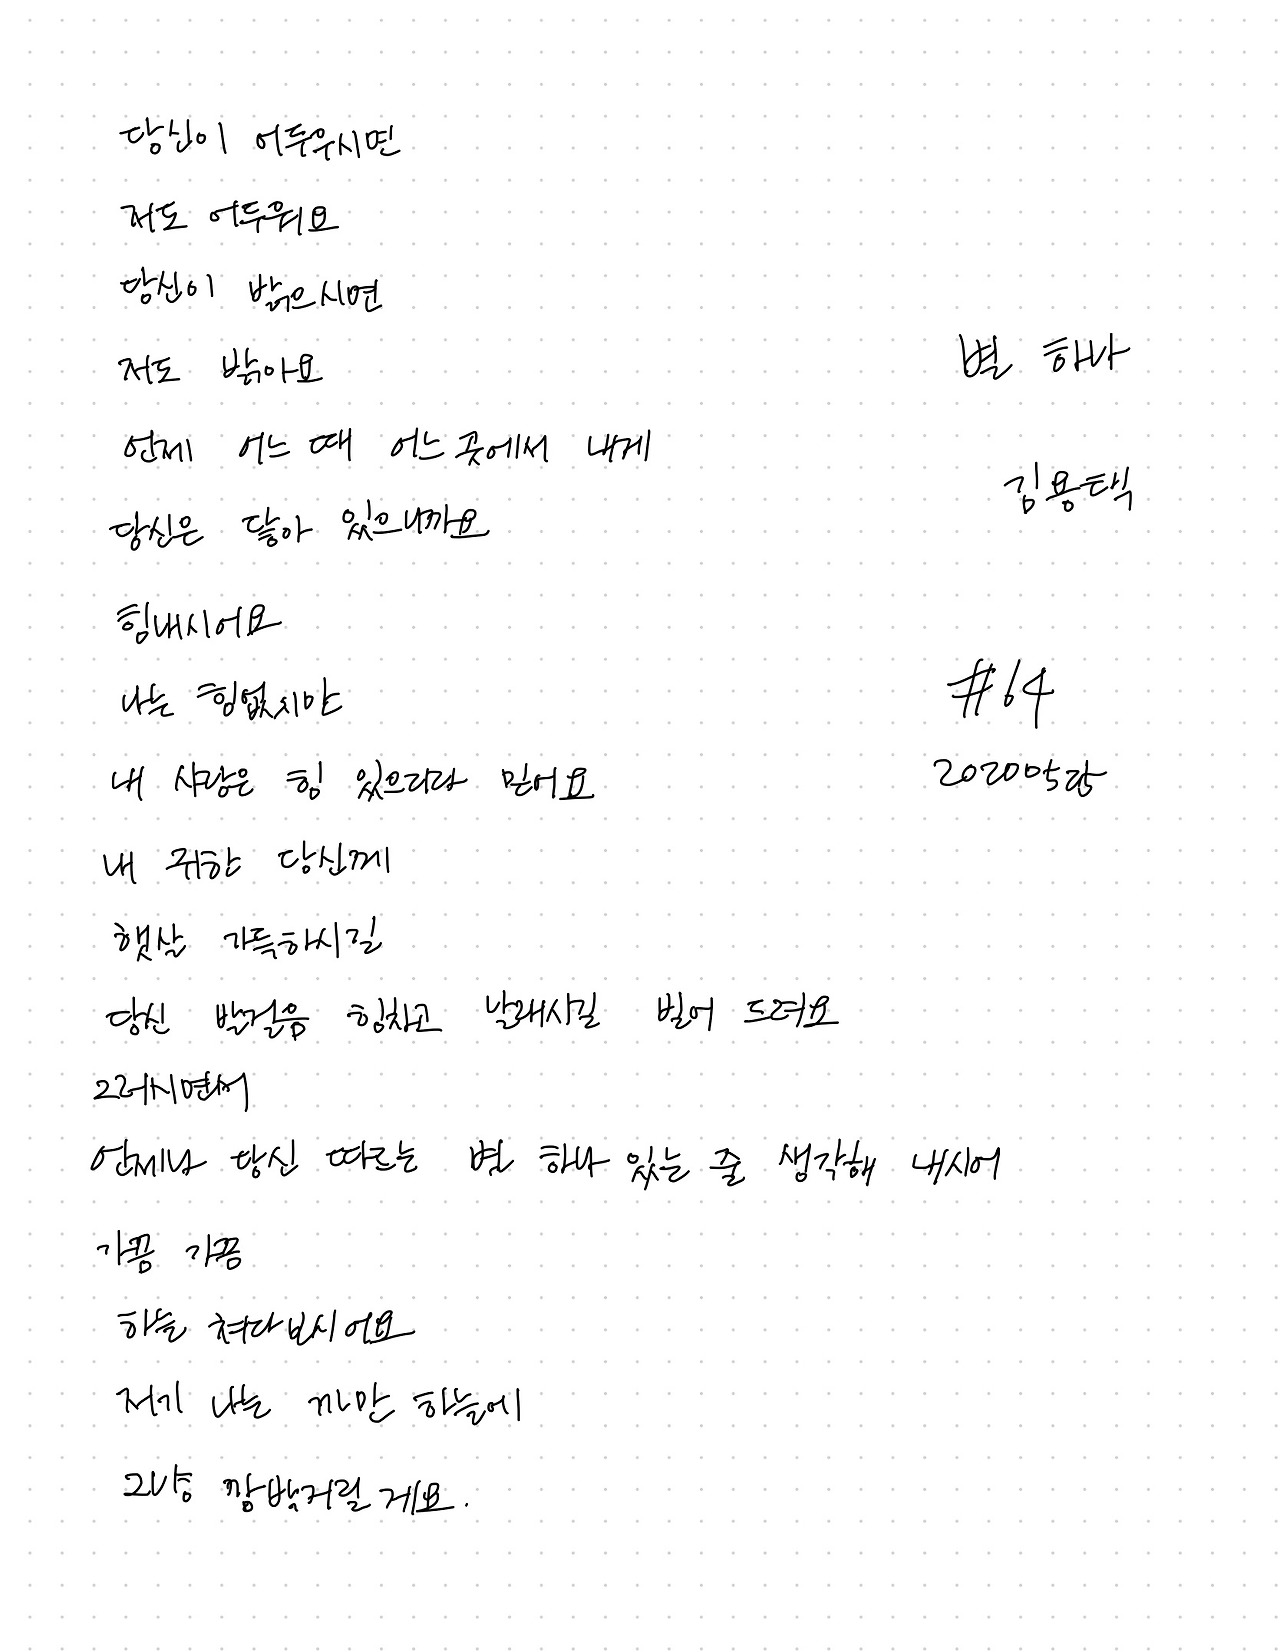 당신이 어두우시면
저도 어두워요
당신이 밝으시면
저도 밝아요
언제 어느 때 어느 곳에서 내게
당신은 닿아 있으니까요
힘내시어요
나는 힘없지만
내 사랑은 힘 있으리라 믿어요
내 귀한 당신께
햇살 가득하시길
당신 발걸음 힘차고 날래시길 빌어 드려요
그러시면서
언제나 당신 따르는 별 하나 있는 줄 생각해 내시어
가끔 가끔
하늘 쳐다보시어요
저기 나는 까만 하늘에
그냥 깜박거릴게요.
별 하나
김용택
#64
2020095